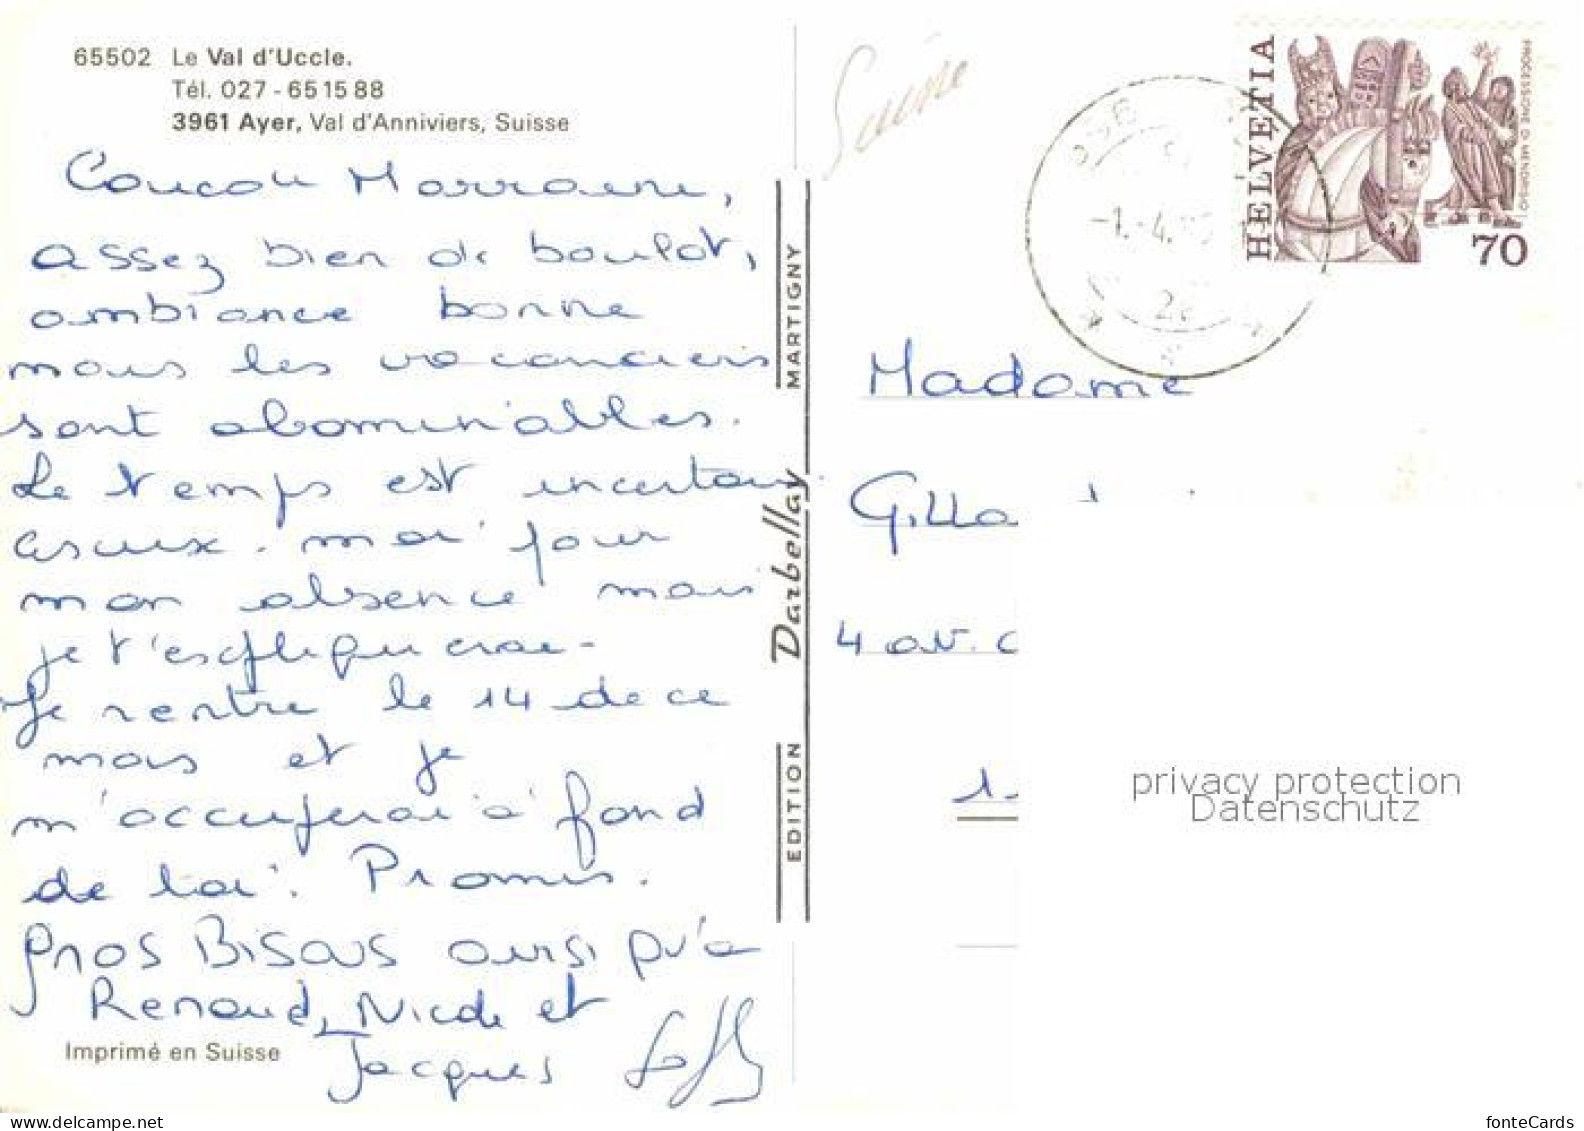 65502 Le Val d'Uccle.
Tél. 027 - 65 15 88
3961 Ayer, Val d'Anniviers, Suisse
Coucou Marraine,
assez bien de boulot,
ambiance bonne
mais les vacanciers
sont abominables.
Le temps est incertain
mon absence mais
je t'expliquerai.
Je rentre le 14 de ce
mois et je
m'occuperai à fond
de toi. Promis.
gros Bisous aussi qu'à
Renaud, Nicole et
Jacques
Imprimé en Suisse
EDITION Darbellay MARTIGNY
Suisse
HELVETIA
PROCESSIONE DI MENDRISIO
70
-1.-4.
Madame
4 av.
privacy protection
Datenschutz
fonteCards